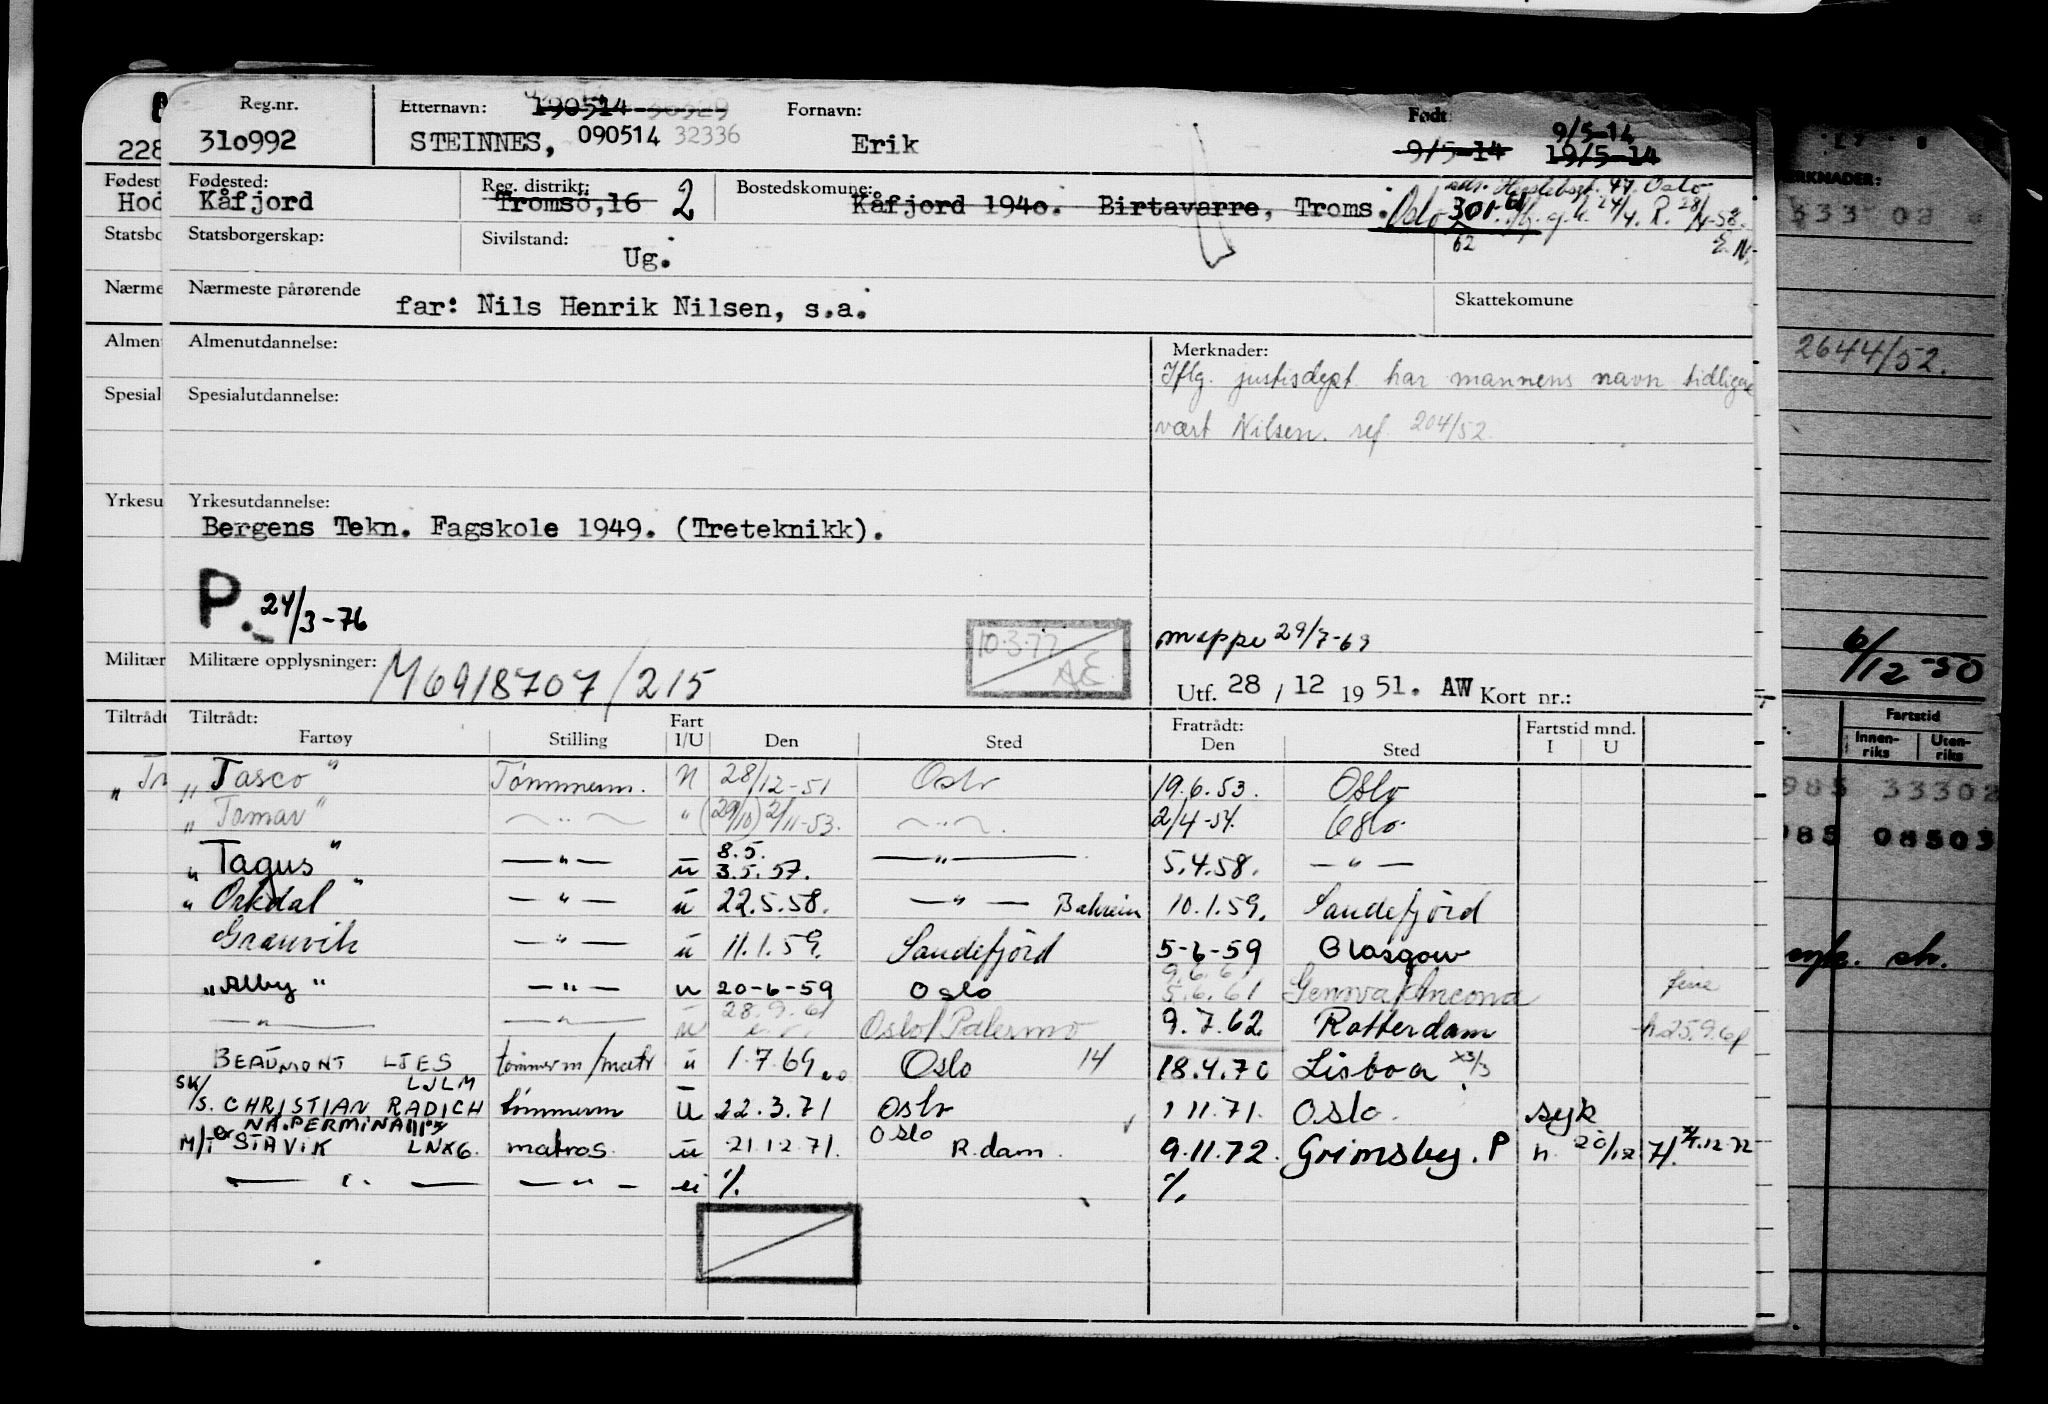 Reg.nr. Etternavn: 190514 Fornavn: Født
310992 STEINNES, 090514 32336 Erik 9/5-14 19/5-14 9/5-14
228
Fødest Fødested: Reg. distrikt: Bostedskomune:
Hod Kåfjord Tromsö,16 2 Kåfjord 1940. Birtavarre, Troms. Oslo 301. 47. Oslo
62 E.N.
Statsbo Statsborgerskap: Sivilstand:
Ug.
Nærme Nærmeste pårørende Skattekomune
far: Nils Henrik Nilsen, s.a.
Almen Almenutdannelse: Merknader:
Iflg. justisdept. har mannens navn tidligere
Spesial Spesialutdannelse:
vært Nilsen. ref. 204/52.
Yrkesu Yrkesutdannelse:
Bergens Tekn. Fagskole 1949. (Treteknikk).
P. 24/3-76
10.3.77 AE
mappe 29/7-69
Militær Militære opplysninger: M6918707/215
Utf. 28 / 12 1951. AW Kort nr.:
Tiltrådt Tiltrådt: Fart Fratrådt: Fartstid mnd.
Fartøy Stilling I/U Den Sted Den Sted I U
" Tasco " Tömmerm. N 28/12-51 Oslo 19.6.53. Oslo
" Tomar " — " — " (29/10) 2/11-53. — " — 2/4-54. Oslo
" Tagus " — " — u 8.5. 3.5.57. — " — 5.4.58. — " —
" Orkdal " — " — u 22.5.58. — " — Bahrein 10.1.59. Sandefjörd
Granvik — " — u 11.1.59. Sandefjörd 5-6-59 Glasgow
" Alby " — " — u 20-6-59 Oslo 9.6.61 5.6.61 Genova/Ancona ferie
— " — — " — u 28.9.61 Oslo/Palermo 9.7.62 Rotterdam h.25.9.61
BEAUMONT LJES tömmerm/matr u 1.7.69 Oslo 14 18.4.70 Lisboa
SK/S. CHRISTIAN RADICH LJLM tömmerm u 22.3.71 Oslo 1 11.71. Oslo. syk
NÅ.PERMINA
M/T STAVIK LNKG. matros. u 21.12.71. Oslo R.dam. 9.11.72. Grimsby. P h. 20/12 71. 12.72
— " — — " — u %. %.
MERKNADER:
333 08
2644/52.
6/12-50
Fartstid
Innen-riks Uten-riks
985 33302
985 08503